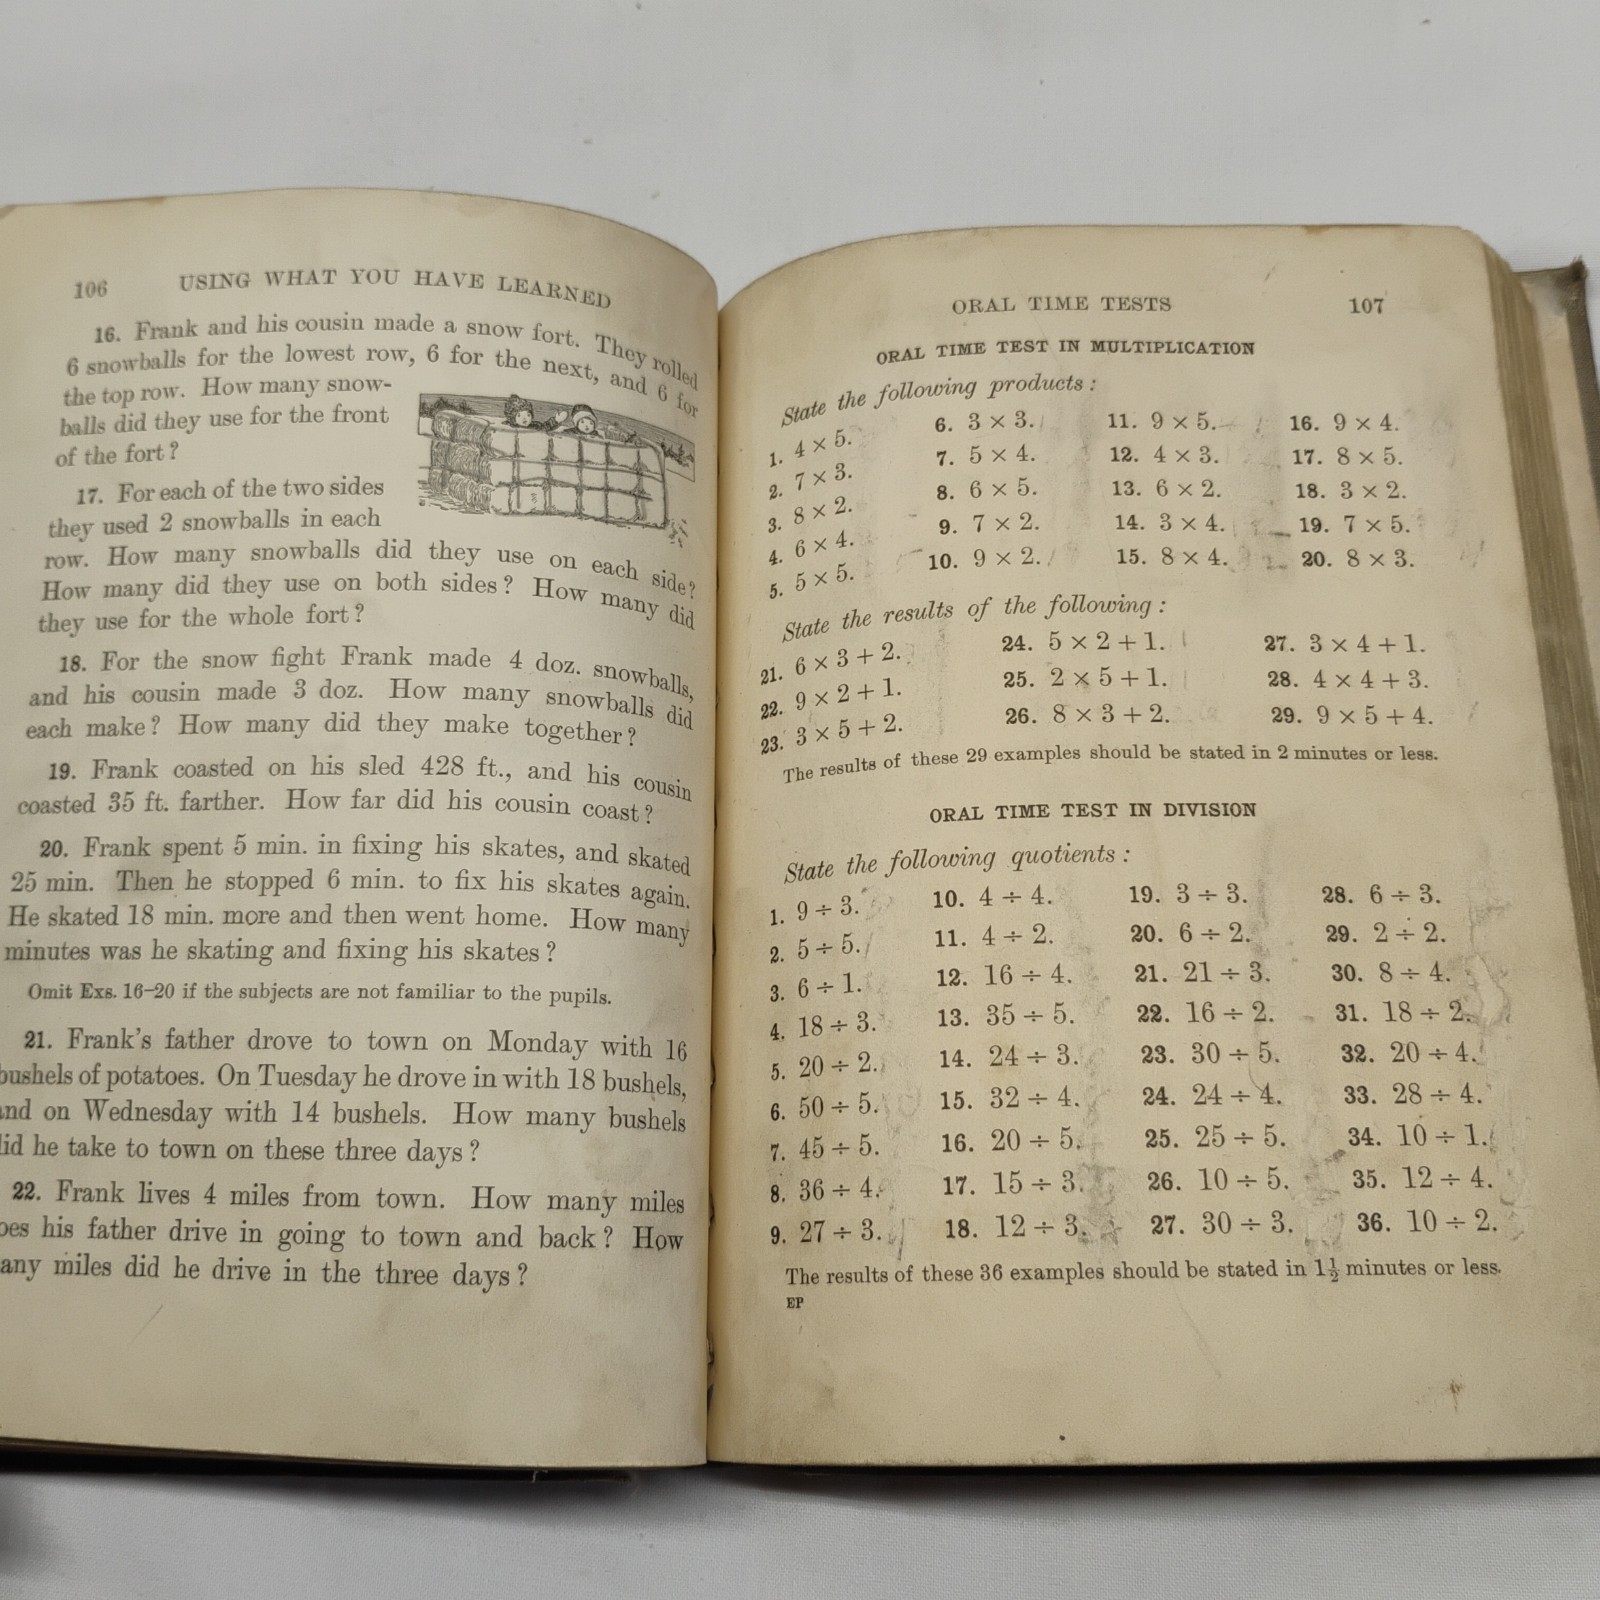 106 USING WHAT YOU HAVE LEARNED
16. Frank and his cousin made a snow fort. They rolled
6 snowballs for the lowest row, 6 for the next, and 6 for
the top row. How many snow-
balls did they use for the front
of the fort?
17. For each of the two sides
they used 2 snowballs in each
row. How many snowballs did they use on each side?
How many did they use on both sides? How many did
they use for the whole fort?
18. For the snow fight Frank made 4 doz. snowballs,
and his cousin made 3 doz. How many snowballs did
each make? How many did they make together?
19. Frank coasted on his sled 428 ft., and his cousin
coasted 35 ft. farther. How far did his cousin coast?
20. Frank spent 5 min. in fixing his skates, and skated
25 min. Then he stopped 6 min. to fix his skates again.
He skated 18 min. more and then went home. How many
minutes was he skating and fixing his skates?
Omit Exs. 16–20 if the subjects are not familiar to the pupils.
21. Frank's father drove to town on Monday with 16
bushels of potatoes. On Tuesday he drove in with 18 bushels,
and on Wednesday with 14 bushels. How many bushels
did he take to town on these three days?
22. Frank lives 4 miles from town. How many miles
oes his father drive in going to town and back? How
any miles did he drive in the three days?
ORAL TIME TESTS 107
ORAL TIME TEST IN MULTIPLICATION
State the following products:
1. 4 × 5. 6. 3 × 3. 11. 9 × 5. 16. 9 × 4.
2. 7 × 3. 7. 5 × 4. 12. 4 × 3. 17. 8 × 5.
3. 8 × 2. 8. 6 × 5. 13. 6 × 2. 18. 3 × 2.
4. 6 × 4. 9. 7 × 2. 14. 3 × 4. 19. 7 × 5.
5. 5 × 5. 10. 9 × 2. 15. 8 × 4. 20. 8 × 3.
State the results of the following:
21. 6 × 3 + 2. 24. 5 × 2 + 1. 27. 3 × 4 + 1.
22. 9 × 2 + 1. 25. 2 × 5 + 1. 28. 4 × 4 + 3.
23. 3 × 5 + 2. 26. 8 × 3 + 2. 29. 9 × 5 + 4.
The results of these 29 examples should be stated in 2 minutes or less.
ORAL TIME TEST IN DIVISION
State the following quotients:
1. 9 ÷ 3. 10. 4 ÷ 4. 19. 3 ÷ 3. 28. 6 ÷ 3.
2. 5 ÷ 5. 11. 4 ÷ 2. 20. 6 ÷ 2. 29. 2 ÷ 2.
3. 6 ÷ 1. 12. 16 ÷ 4. 21. 21 ÷ 3. 30. 8 ÷ 4.
4. 18 ÷ 3. 13. 35 ÷ 5. 22. 16 ÷ 2. 31. 18 ÷ 2.
5. 20 ÷ 2. 14. 24 ÷ 3. 23. 30 ÷ 5. 32. 20 ÷ 4.
6. 50 ÷ 5. 15. 32 ÷ 4. 24. 24 ÷ 4. 33. 28 ÷ 4.
7. 45 ÷ 5. 16. 20 ÷ 5. 25. 25 ÷ 5. 34. 10 ÷ 1.
8. 36 ÷ 4. 17. 15 ÷ 3. 26. 10 ÷ 5. 35. 12 ÷ 4.
9. 27 ÷ 3. 18. 12 ÷ 3. 27. 30 ÷ 3. 36. 10 ÷ 2.
The results of these 36 examples should be stated in 1½ minutes or less.
EP